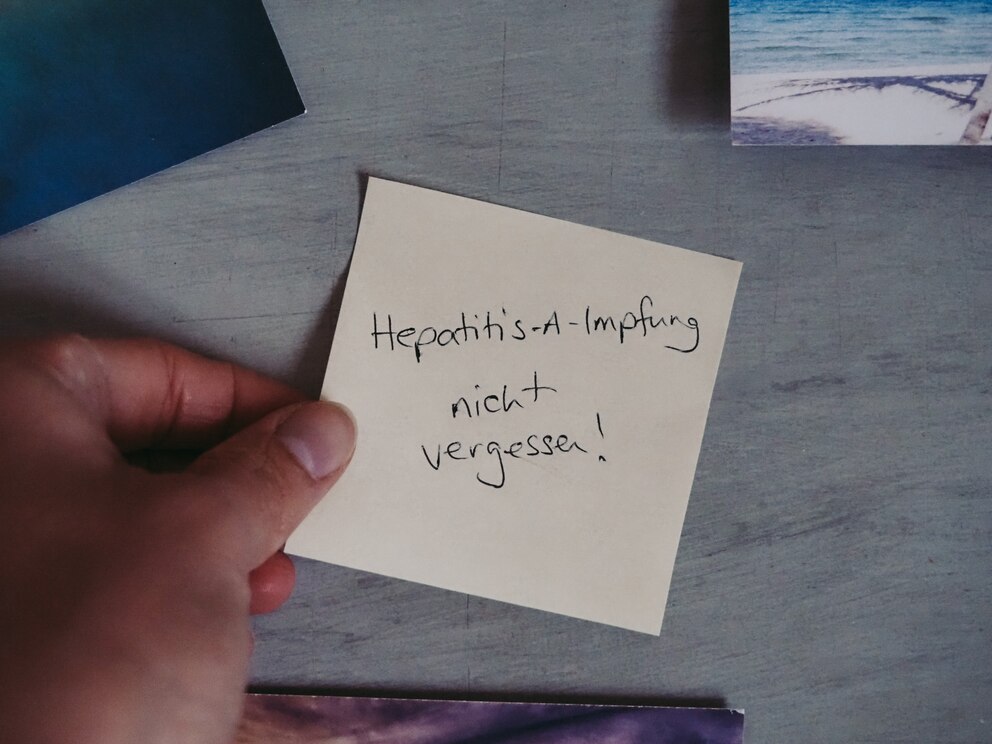 Hepatitis-A-Impfung
nicht
vergessen!